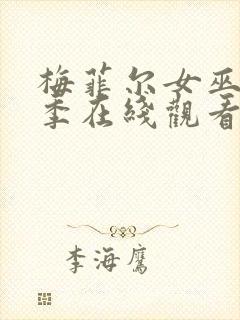 梅菲尔女巫
季在线觀看
李海鹰